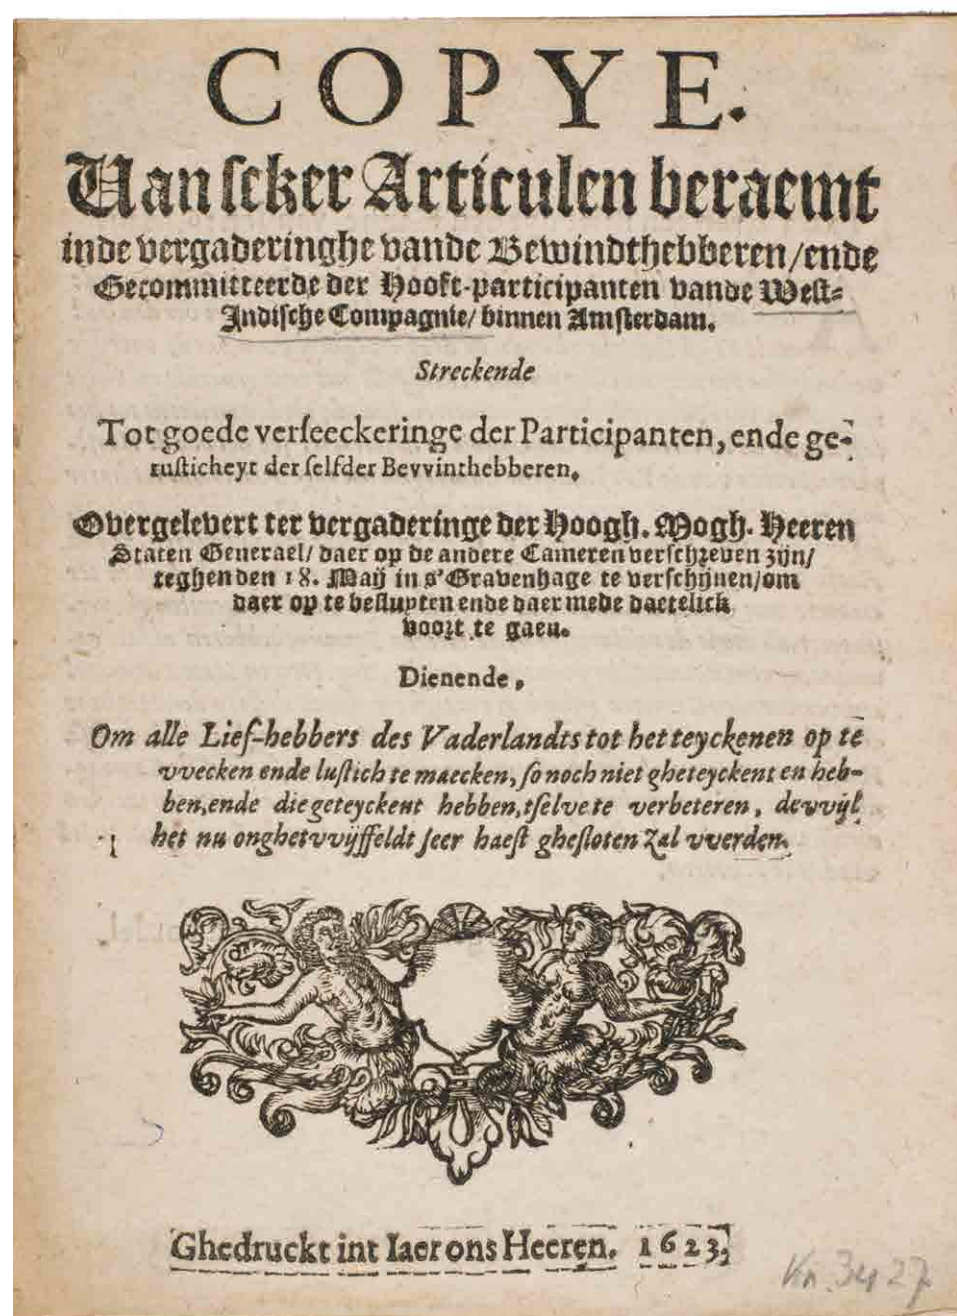 COPYE.
Van seker Articulen beraemt
inde vergaderinghe vande Bewindthebberen/ende
Gecommitteerde der Hooft-participanten vande West-
Indische Compagnie/ binnen Amsterdam.
Streckende
Tot goede verseeckeringe der Participanten, ende ge-
rusticheyt der selfder Bevvinthebberen.
Overgelevert ter vergaderinge der Hoogh. Mogh. Heeren
Staten Generael/ daer op de andere Cameren verschreven zijn/
teghen den 18. Maij in s'Gravenhage te verschijnen/om
daer op te besluyten ende daer mede daetelick
voort te gaen.
Dienende,
Om alle Lief-hebbers des Vaderlandts tot het teyckenen op te
vvecken ende lustich te maecken, so noch niet gheteyckent en heb-
ben, ende die geteyckent hebben, tselve te verbeteren, devvijl
het nu onghetvvijffeldt seer haest ghesloten zal vverden.
Ghedruckt int Iaer ons Heeren. 1623.
Kn. 3427